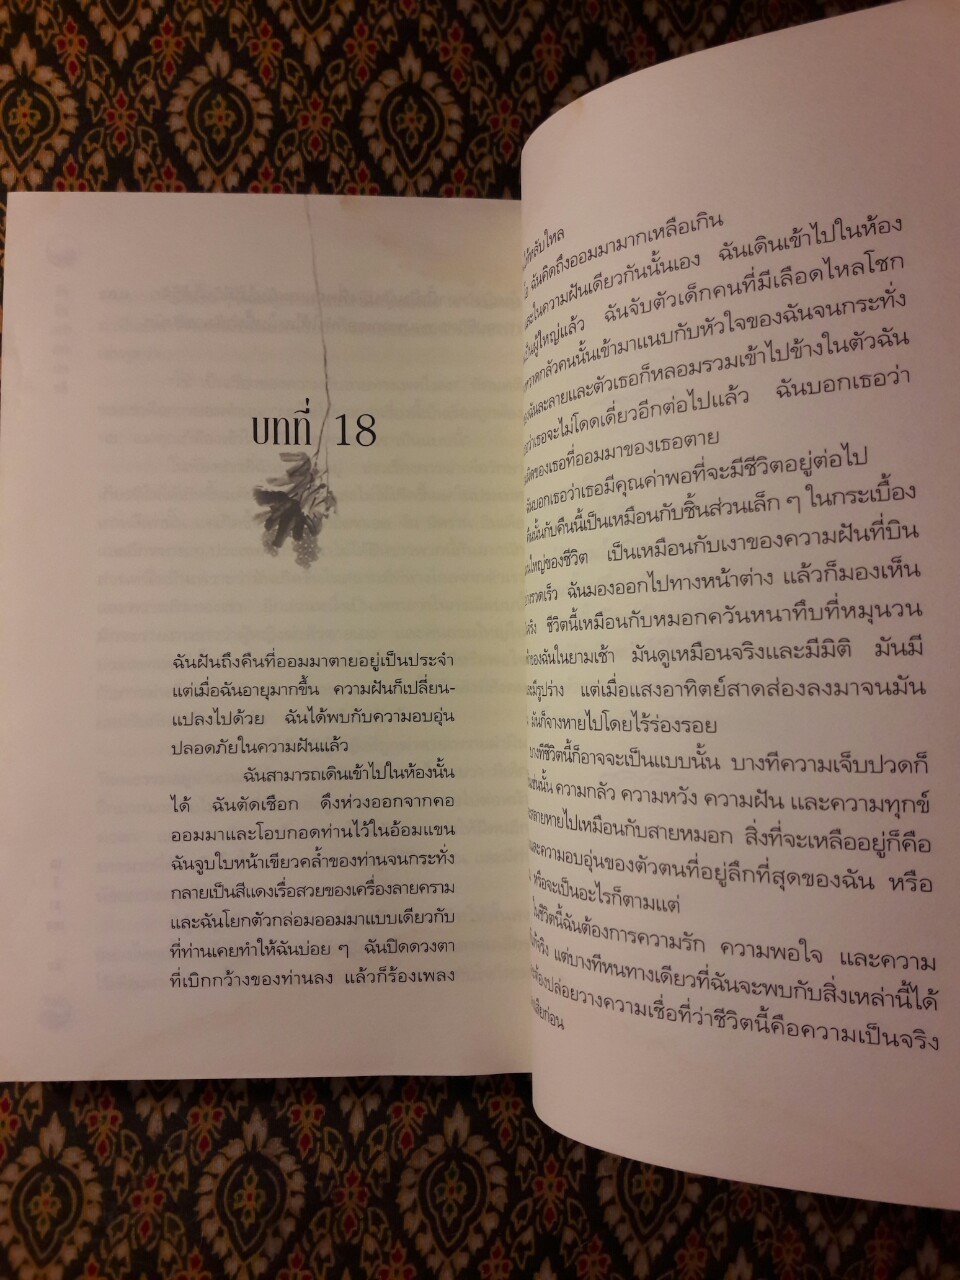 บทที่ 18
ฉันฝันถึงคืนที่ออมมาตายอยู่เป็นประจำ
แต่เมื่อฉันอายุมากขึ้น ความฝันก็เปลี่ยน-
แปลงไปด้วย ฉันได้พบกับความอบอุ่น
ปลอดภัยในความฝันแล้ว
ฉันสามารถเดินเข้าไปในห้องนั้น
ได้ ฉันตัดเชือก ดึงห่วงออกจากคอ
ออมมาและโอบกอดท่านไว้ในอ้อมแขน
ฉันจูบใบหน้าเขียวคล้ำของท่านจนกระทั่ง
กลายเป็นสีแดงเรื่อสวยของเครื่องลายคราม
และฉันโยกตัวกล่อมออมมาแบบเดียวกับ
ที่ท่านเคยทำให้ฉันบ่อย ๆ ฉันปิดดวงตา
ที่เบิกกว้างของท่านลง แล้วก็ร้องเพลง
หลับใหล
ฉันคิดถึงออมมามากเหลือเกิน
ในความฝันเดียวกันนั้นเอง ฉันเดินเข้าไปในห้อง
ผู้ใหญ่แล้ว ฉันจับตัวเด็กคนที่มีเลือดไหลโชก
คนนั้นเข้ามาแนบกับหัวใจของฉันจนกระทั่ง
ละลายและตัวเธอก็หลอมรวมเข้าไปข้างในตัวฉัน
ว่าเธอจะไม่โดดเดี่ยวอีกต่อไปแล้ว ฉันบอกเธอว่า
ของเธอที่ออมมาของเธอตาย
บอกเธอว่าเธอมีคุณค่าพอที่จะมีชีวิตอยู่ต่อไป
นั้นกับคืนนี้เป็นเหมือนกับชิ้นส่วนเล็ก ๆ ในกระเบื้อง
ใหญ่ของชีวิต เป็นเหมือนกับเงาของความฝันที่บิน
รวดเร็ว ฉันมองออกไปทางหน้าต่าง แล้วก็มองเห็น
ชีวิตนี้เหมือนกับหมอกควันหนาทึบที่หมุนวน
ของฉันในยามเช้า มันดูเหมือนจริงและมีมิติ มันมี
มีรูปร่าง แต่เมื่อแสงอาทิตย์สาดส่องลงมาจนมัน
มันก็จางหายไปโดยไร้ร่องรอย
บางทีชีวิตนี้ก็อาจจะเป็นแบบนั้น บางทีความเจ็บปวดก็
เช่นนั้น ความกลัว ความหวัง ความฝัน และความทุกข์
หายไปเหมือนกับสายหมอก สิ่งที่จะเหลืออยู่ก็คือ
และความอบอุ่นของตัวตนที่อยู่ลึกที่สุดของฉัน หรือ
หรือจะเป็นอะไรก็ตามแต่
ในชีวิตนี้ฉันต้องการความรัก ความพอใจ และความ
แต่บางทีหนทางเดียวที่ฉันจะพบกับสิ่งเหล่านี้ได้
ต้องปล่อยวางความเชื่อที่ว่าชีวิตนี้คือความเป็นจริง
เสียก่อน